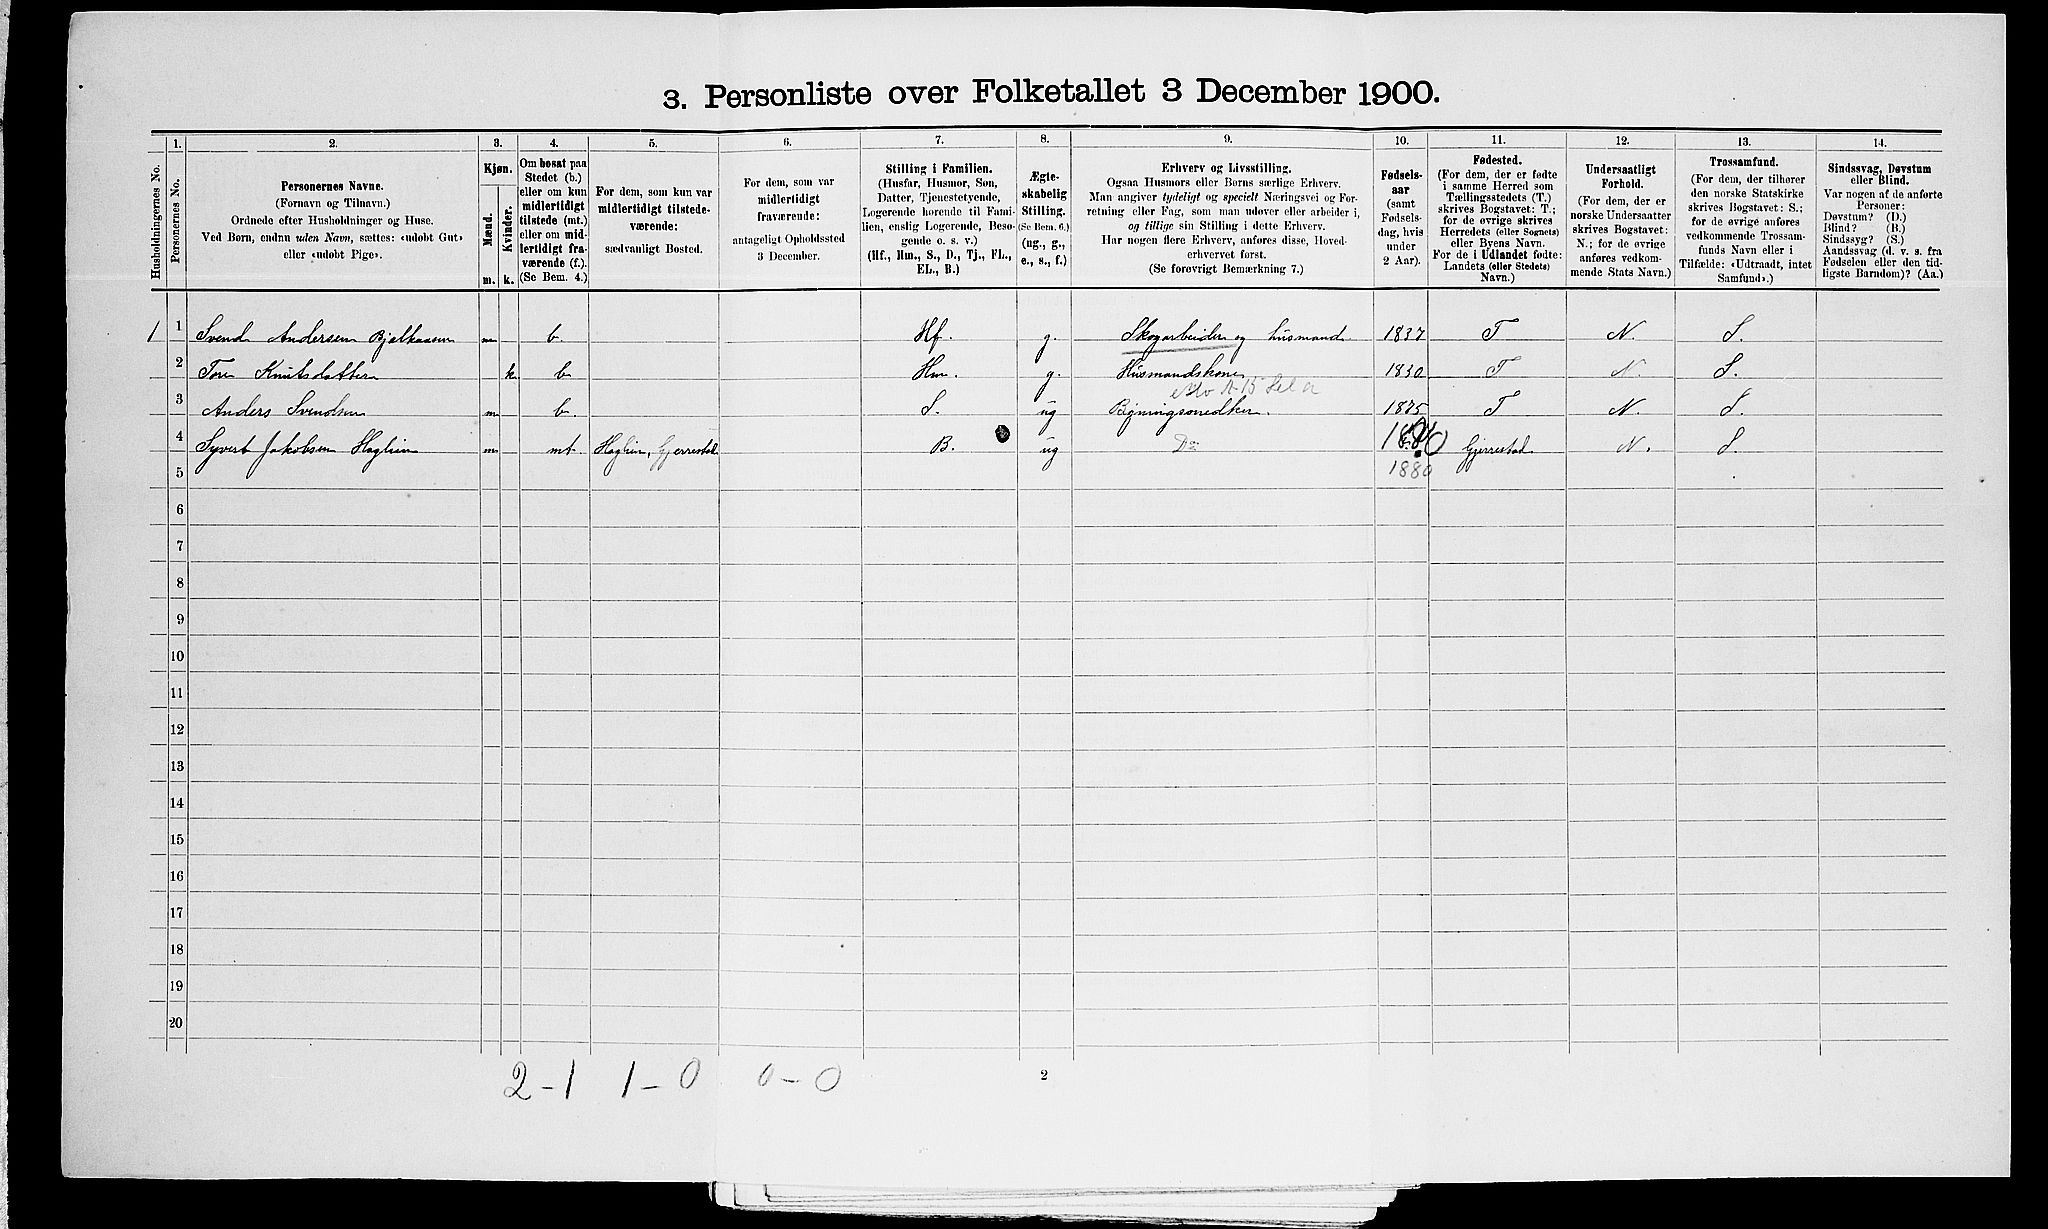 3. Personliste over Folketallet 3 December 1900.
Husholdningernes No.
1.
Personernes No.
2.
Personernes Navne.
(Fornavn og Tilnavn.)
Ordnede efter Husholdninger og Huse.
Ved Børn, endnu uden Navn, sættes: «udøbt Gut»
eller «udøbt Pige».
3.
Kjøn.
Mænd.
Kvinder.
m. k.
4.
Om bosat paa
Stedet (b.)
eller om kun
midlertidigt
tilstede (mt.)
eller om mid-
lertidigt fra-
værende (f.).
(Se Bem. 4.)
5.
For dem, som kun var
midlertidigt tilstede-
værende:
sædvanligt Bosted.
6.
For dem, som var
midlertidigt
fraværende:
antageligt Opholdssted
3 December.
7.
Stilling i Familien.
(Husfar, Husmor, Søn,
Datter, Tjenestetyende,
Logerende hørende til Fami-
lien, enslig Logerende, Besø-
gende o. s. v.)
(Hf., Hm., S., D., Tj., FL.,
EL., B.)
8.
Ægte-
skabelig
Stilling.
(Se Bem. 6.)
(ug., g.,
e., s., f.)
9.
Erhverv og Livsstilling.
Ogsaa Husmors eller Børns særlige Erhverv.
Man angiver tydeligt og specielt Næringsvei og For-
retning eller Fag, som man udøver eller arbeider i,
og tillige sin Stilling i dette Erhverv.
Har nogen flere Erhverv, anføres disse, Hoved-
erhvervet først.
(Se forøvrigt Bemærkning 7.)
10.
Fødsels-
aar
(samt
Fødsels-
dag, hvis
under
2 Aar).
11.
Fødested.
(For dem, der er fødte
i samme Herred som
Tællingsstedets (T.)
skrives Bogstavet: T.;
for de øvrige skrives
Herredets (eller Sognets)
eller Byens Navn.
For de i Udlandet fødte:
Landets (eller Stedets)
Navn.)
12.
Undersaatligt
Forhold.
(For dem, der er
norske Undersaatter
skrives Bogstavet:
N.; for de øvrige
anføres vedkom-
mende Stats Navn.)
13.
Trossamfund.
(For dem, der tilhører
den norske Statskirke
skrives Bogstavet: S.;
for de øvrige anføres
vedkommende Trossam-
funds Navn eller i
Tilfælde: «Udtraadt, intet
Samfund».)
14.
Sindssvag, Døvstum
eller Blind.
Var nogen af de anførte
Personer:
Døvstum? (D.)
Blind? (B.)
Sindssyg? (S.)
Aandssvag (d. v. s. fra
Fødselen eller den tid-
ligste Barndom)? (Aa.)
1 1 Svend Andersen Bjelkaasen m b. Hf. g. Skogarbeider og husmand 1837 T N. S.
2 Tone Knutsdatter k b Hm. g. Husmandskone 1830 T N S.
3 Anders Svendsen m b. S. ug Bygningssnedker. 1875 T N. S.
4 Syvert Jakobsen Haglien m mt. Haglien, Gjerrestad B. ug Do 1880 Gjerrestad N. S.
5 1880
6
7
8
9
10
11
12
13
14
15
16
17
18
19
20
2-1 1-0 0-0
2